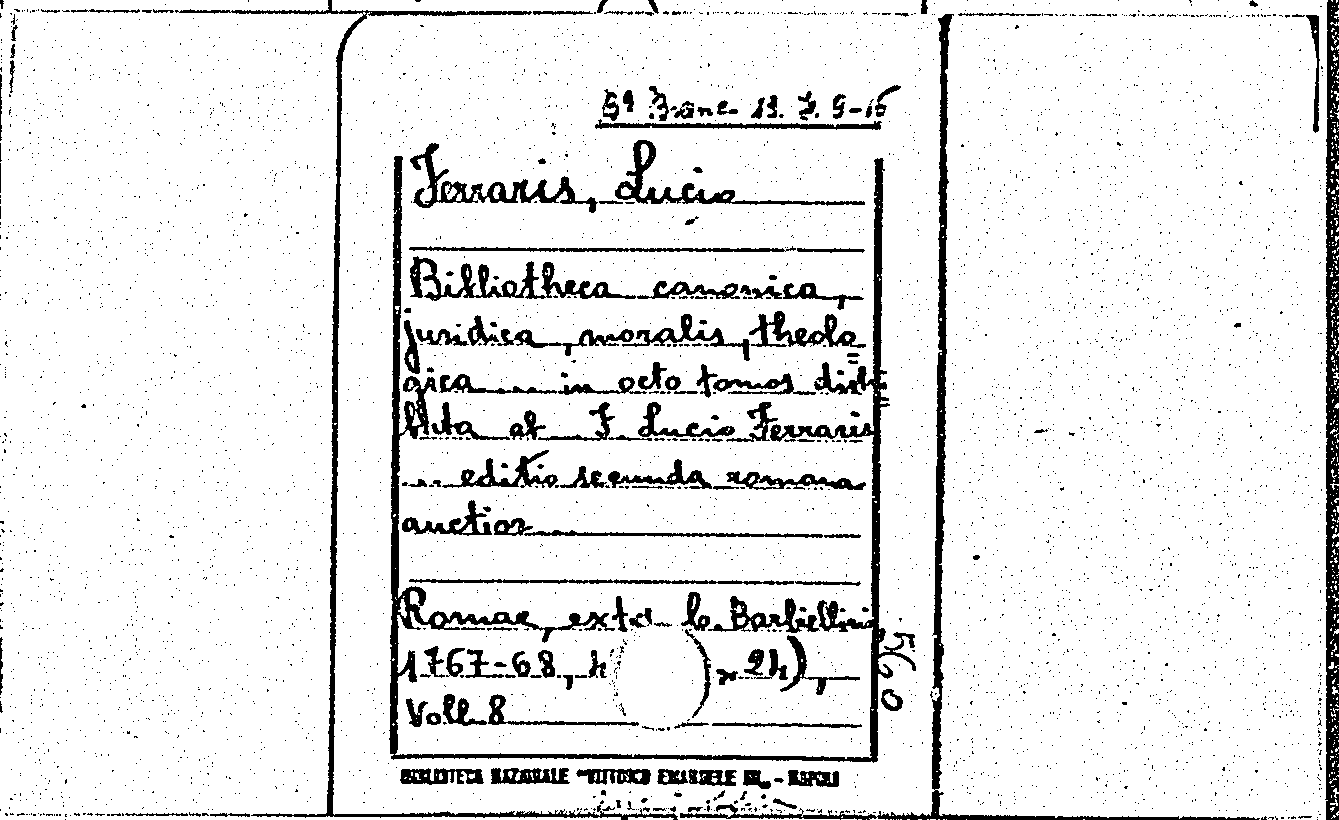 Sª Branc. 13. F. 9-16
Ferraris, Lucio
Bibliotheca canonica,
juridica, moralis, theolo=
gica ... in octo tomos distri=
buta ab F. Lucio Ferraris
... editio secunda romana
auctior ...
Romae, ext. b. Barbiellini
1767-68, 4 24),
Voll. 8
BIBLIOTECA NAZIONALE "VITTORIO EMANUELE III" - NAPOLI
560